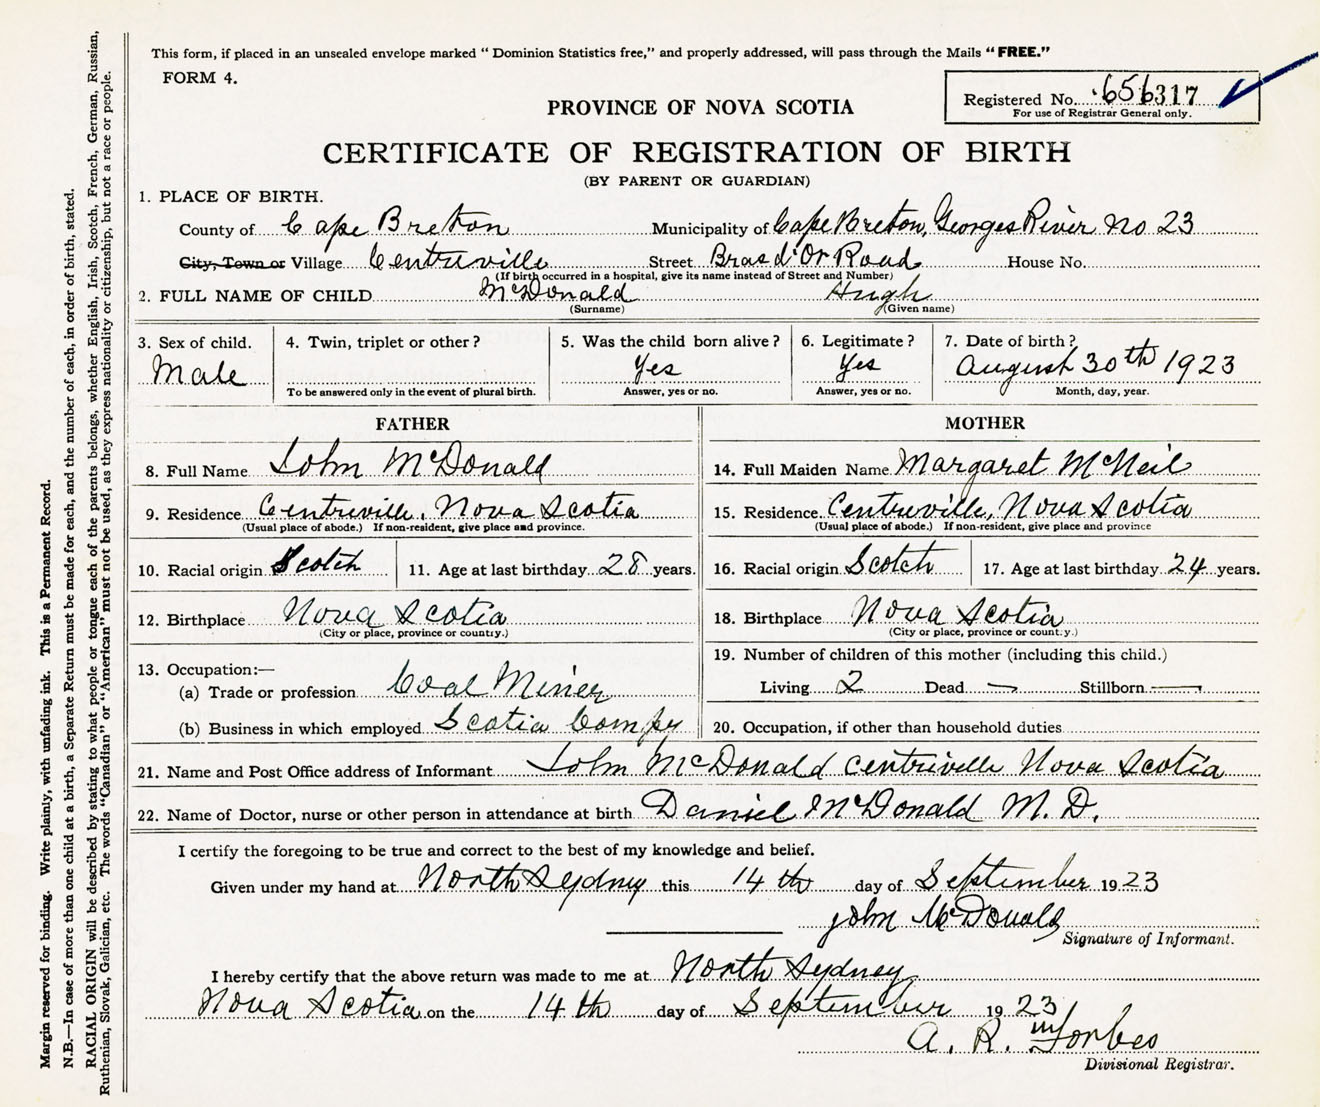 This form, if placed in an unsealed envelope marked “ Dominion Statistics free,” and properly addressed, will pass through the Mails “FREE.”
FORM 4.
Registered No. 656317
For use of Registrar General only.
PROVINCE OF NOVA SCOTIA
CERTIFICATE OF REGISTRATION OF BIRTH
(BY PARENT OR GUARDIAN)
1. PLACE OF BIRTH.
County of Cape Breton Municipality of Cape Breton, Georges River No 23
City, Town or Village Centreville Street Bras d'Or Road House No.
(If birth occurred in a hospital, give its name instead of Street and Number)
2. FULL NAME OF CHILD McDonald Hugh
(Surname) (Given name)
3. Sex of child. 4. Twin, triplet or other? 5. Was the child born alive? 6. Legitimate? 7. Date of birth?
Male Yes Yes August 30th 1923
To be answered only in the event of plural birth. Answer, yes or no. Answer, yes or no. Month, day, year.
FATHER MOTHER
8. Full Name John McDonald 14. Full Maiden Name Margaret McNeil
9. Residence Centreville, Nova Scotia 15. Residence. Centreville, Nova Scotia
(Usual place of abode.) If non-resident, give place and province. (Usual place of abode.) If non-resident, give place and province
10. Racial origin Scotch 11. Age at last birthday 28 years. 16. Racial origin Scotch 17. Age at last birthday 24 years.
12. Birthplace Nova Scotia 18. Birthplace Nova Scotia
(City or place, province or country.) (City or place, province or country.)
13. Occupation:— 19. Number of children of this mother (including this child.)
(a) Trade or profession Coal Miner Living 2 Dead — Stillborn —
(b) Business in which employed Scotia Compy 20. Occupation, if other than household duties
21. Name and Post Office address of Informant John McDonald Centreville Nova Scotia
22. Name of Doctor, nurse or other person in attendance at birth Daniel McDonald M. D.
I certify the foregoing to be true and correct to the best of my knowledge and belief.
Given under my hand at North Sydney this 14th day of September 1923
John McDonald
Signature of Informant.
I hereby certify that the above return was made to me at North Sydney
Nova Scotia on the 14th day of September 1923
A. R. Forbes
Divisional Registrar.
Margin reserved for binding. Write plainly, with unfading ink. This is a Permanent Record.
N.B.—In case of more than one child at a birth, a Separate Return must be made for each, and the number of each, in order of birth, stated.
RACIAL ORIGIN will be described by stating to what people or tongue each of the parents belongs, whether English, Irish, Scotch, French, German, Russian,
Ruthenian, Slovak, Galician, etc. The words “Canadian” or “American” must not be used, as they express nationality or citizenship, but not a race or people.